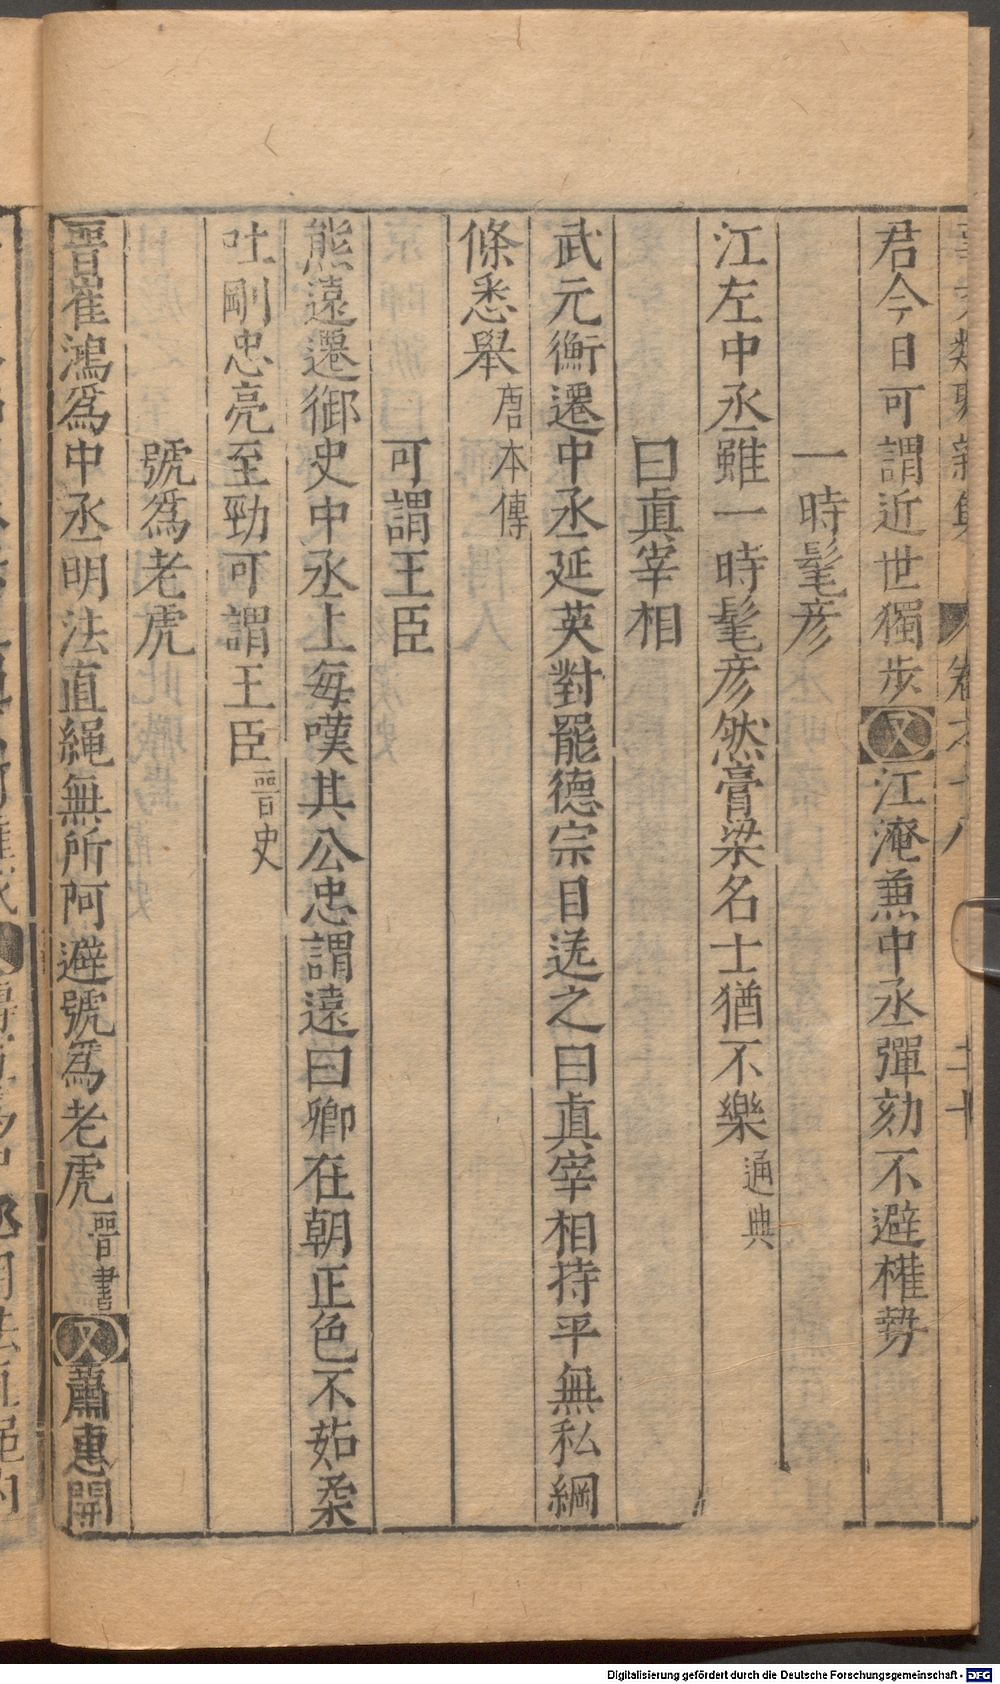 君今日可謂近世獨步又江淹兼中丞彈劾不避權勢
一時髦彦
江左中丞雖一時髦彦然膏粱名士猶不樂通典
曰真宰相
武元衡遷中丞延英對罷德宗目送之曰真宰相持平無私綱
條悉舉唐本傳
可謂王臣
熊遠遷御史中丞上每嘆其公忠謂遠曰卿在朝正色不茹柔
吐剛忠亮至勁可謂王臣晉史
號爲老虎
晉崔鴻爲中丞明法直繩無所阿避號爲老虎晉書又蕭惠開
Digitalisierung gefördert durch die Deutsche Forschungsgemeinschaft - DFG